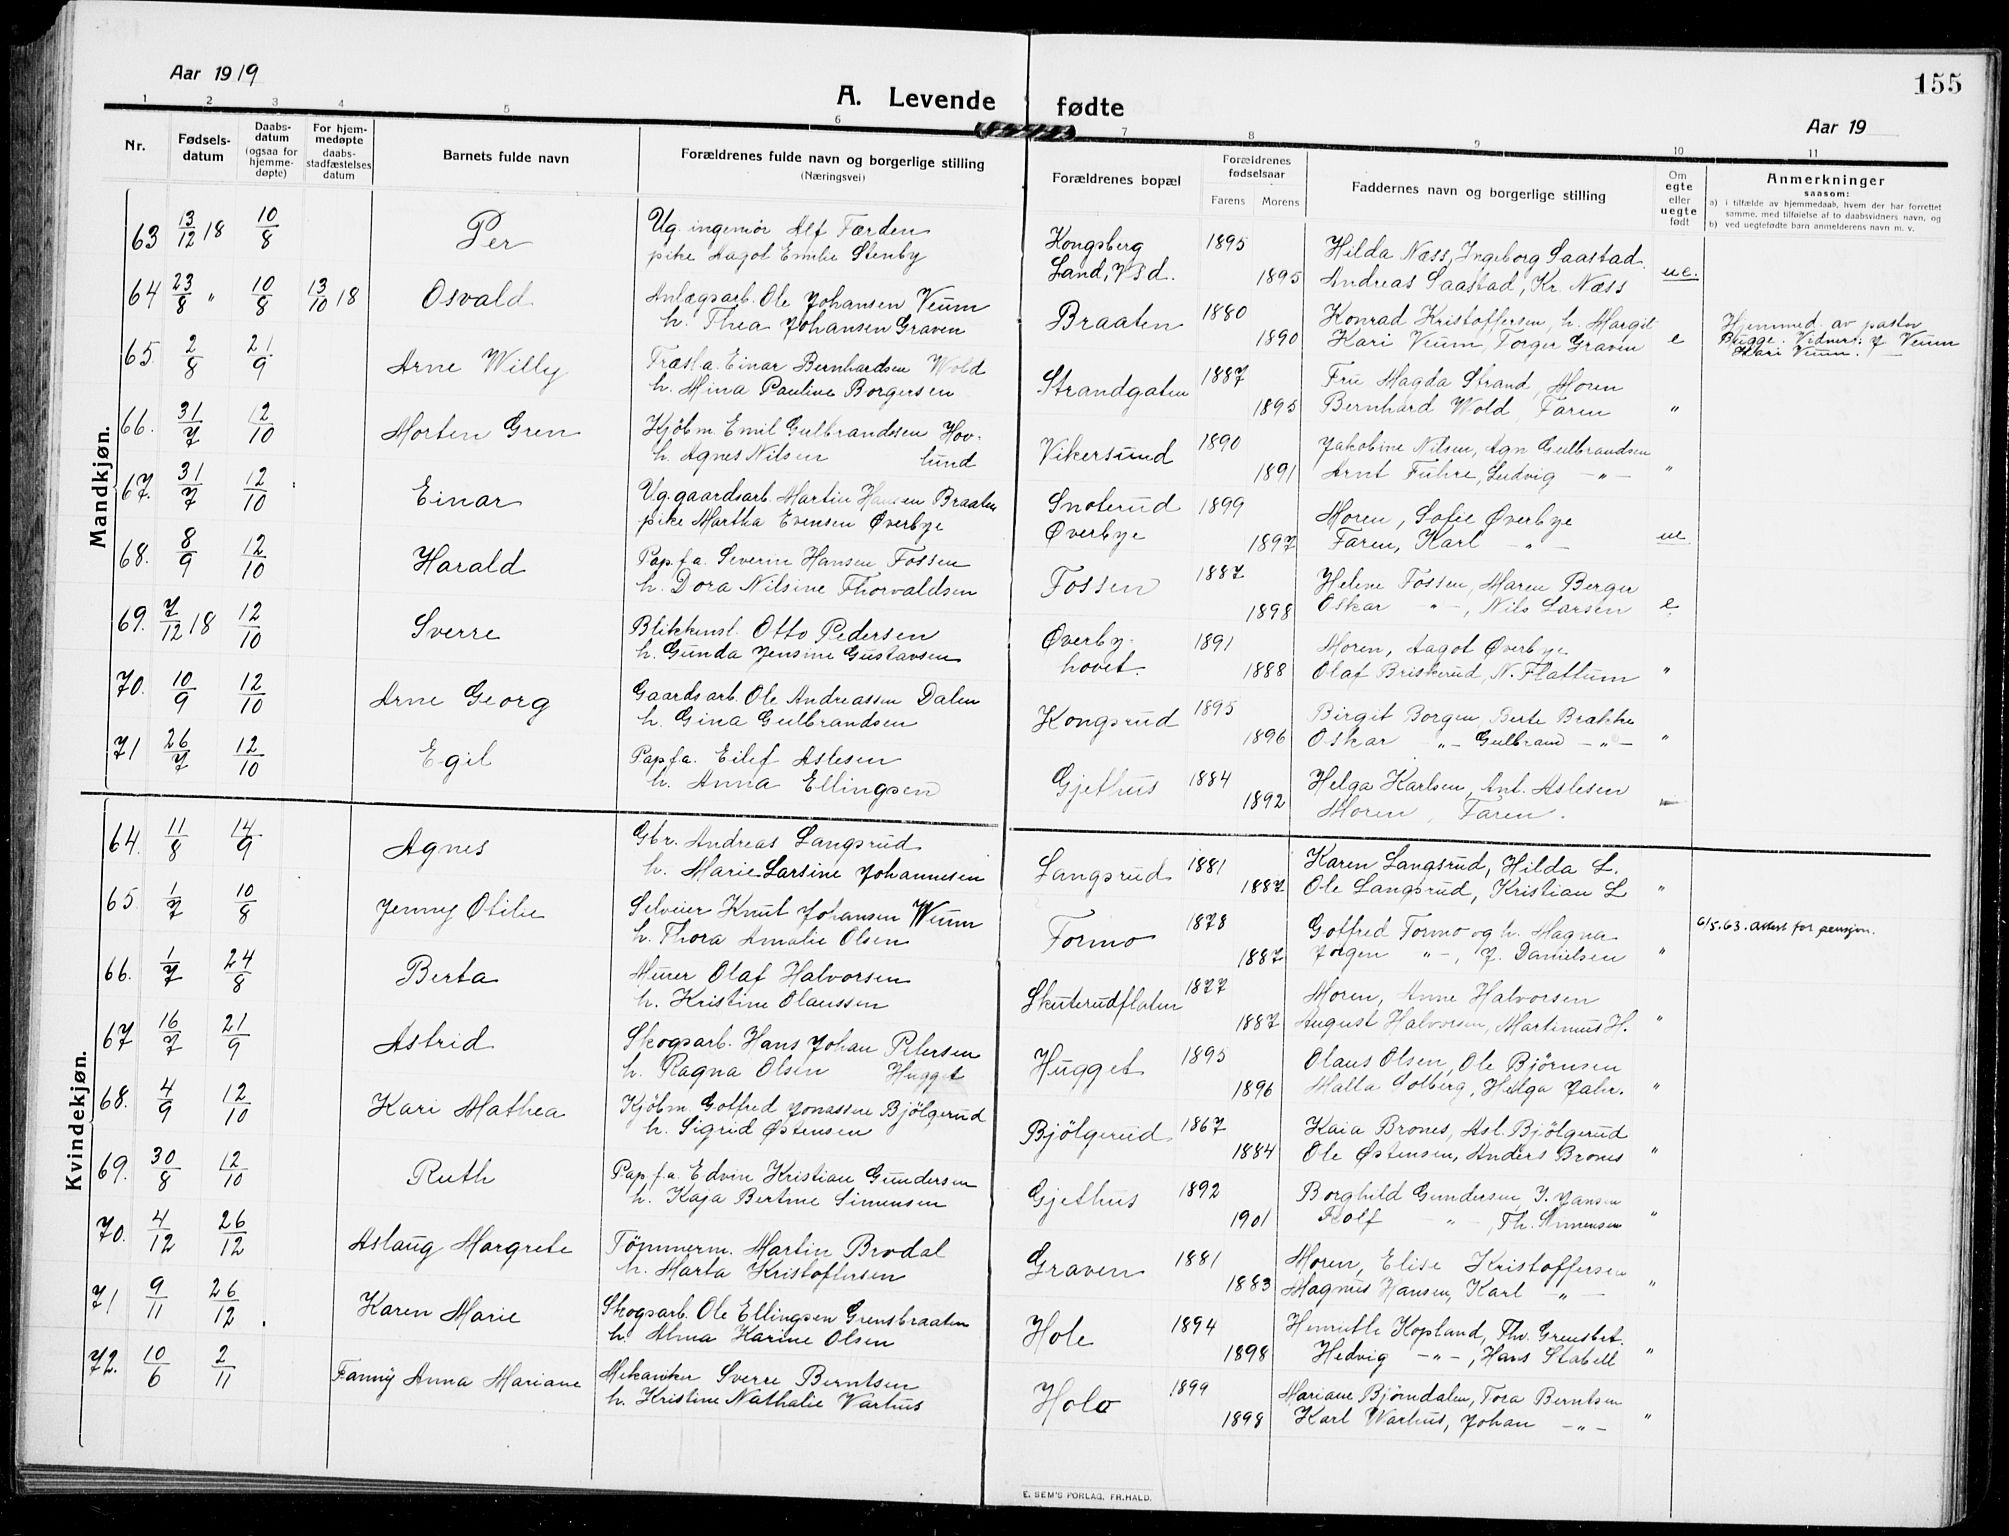 155
Aar 1919
A. Levende fødte
Aar 19
1 2 3 4 5 6 7 8 9 10 11
Nr.
Fødsels-
datum
Daabs-
datum
(ogsaa for
hjemme-
døpte)
For hjem-
medøpte
daabs-
stadfæstelses
datum
Barnets fulde navn
Forældrenes fulde navn og borgerlige stilling
(Næringsvei)
Forældrenes bopæl
Forældrenes
fødselsaar
Farens Morens
Faddernes navn og borgerlige stilling
Om
egte
eller
uegte
født
Anmerkninger
saasom:
a) i tilfælde av hjemmedaab, hvem der har forrettet
samme, med tilføielse af to daabsvidners navn, og
b) ved uegtefødte barn anmelderens navn m. v.
Mandkjøn.
63 13/12 18 10/8 Per Ug. ingeniør Alf Færden Kongsberg 1895 Hilda Næss, Ingeborg Saastad
pike Aagot Emilie Stenby Land, V.Sd. 1895 Andreas Saastad, Kr. Næss ue.
64 23/8 " 10/8 13/10 18 Osvald Anlægsarb. Ole Johansen Veum Braaten 1880 Konrad Kristoffersen, h. Margit Hjemmed. av pastor
h. Thea Johansen Graven 1890 Kari Veum, Torger Graven e Bugge. Vidner: J Veum
Kari Veum.
65 2/8 21/9 Arne Willy Træsl.a. Einar Bernhardsen Wold Strandgaten 1887 Fru Magda Strand, Moren
h. Mina Pauline Borgersen 1895 Bernhard Wold, Faren "
66. 31/7 12/10 Morten Gren Kjøbm. Emil Gulbrandsen Hov- Vikersund 1890 Jakobine Nilsen, Agn Gulbrandsen
h. Agnes Nilsen lund 1891 Arnt Fuhre, Ludvig -"- "
67. 31/7 12/10 Einar Ug. gaardsarb. Martin Hansen Braaten Snoterud 1899 Moren, Sofie Øverbye
pike Martha Evensen Øverbye Øverbye 1897 Faren, Karl -"- ue.
68. 8/9 12/10 Harald Pap.f.a. Severin Hansen Fossen Fossen 1887 Helene Fossen, Maren Berger
h. Dora Nilsine Thorvaldsen 1898 Oskar -"-, Nils Larsen e.
69. 7/12 18 12/10 Sverre Blikkensl. Otto Pedersen Øverby- 1891 Moren, Aagot Øverbye
h. Gunda Jensine Gustavsen hovet. 1888 Olaf Briskerud, N. Flattum "
70. 10/9 12/10 Arne Georg Gaardsarb. Ole Andreassen Dalen Kongsrud 1895 Birgit Borgen, Berte Brakke
h. Gina Gulbrandsen 1896 Oskar -"- Gulbrand -"- "
71 26/7 12/10 Egil Papfa. Eilef Aslesen Gjethus 1884 Helga Karlsen, Ant. Aslesen
h. Anna Ellingsen 1892 Moren, Faren.
Kvindekjøn.
64. 11/8 14/9 Agnes Gbr. Andreas Langsrud Langsrud 1881 Karen Langsrud, Hilda L.
h. Marie Larsine Johannesen 1887 Ole Langsrud, Kristian L "
65. 1/7 10/8 Jenny Otilie Selveier Knut Johansen Weum Formo 1878 Gotfred Formo og h. Magna 6/5.63. attest for pensjon.
h. Thora Amalie Olsen 1887 Jørgen "-, J. Danielsen "
66. 1/7 24/8 Berta Murer Olaf Halvorsen Skuterudflaten 1877 Moren, Anne Halvorsen
h. Kristine Olaussen 1887 August Halvorsen, Martinius H. "
67 16/7 21/9 Astrid Skogsarb. Hans Johan Petersen Hugget 1895 Olaus Olsen, Ole Bjørnsen
h. Ragna Olsen Hugget 1896 Malla Solberg, Helga Jahr. "
68. 4/9 12/10 Kari Mathea Kjøbm. Gotfred Jonassen Bjölgerud Bjölgerud 1867 Kaia Brones, Asl. Bjölgerud
h. Sigrid Østensen 1884 Ole Østensen, Anders Brones "
69. 30/8 12/10 Ruth Pap.f.a. Edvin Kristian Gundersen Gjethus 1892 Borghild Gundersen, J. Jansen
h. Kaja Bertine Simensen 1901 Rolf -"-, Th. Simensen "
70. 4/12 26/12 Aslaug Margrete Tømmerm. Martin Brodal Graven 1881 Moren, Elise Kristoffersen
h. Marta Kristoffersen 1883 Magnus Hansen, Karl -"- "
71 9/11 26/12 Karen Marie Skogsarb. Ole Ellingsen Grensbraaten Hole 1894 Henriette Kopland, Thv. Grensbr.
h. Alma Karine Olsen 1898 Hedvig -"-, Hans Stabell "
72. 10/6 2/11 Fanny Anna Mariane Mekaniker Sverre Berntsen Holo 1899 Mariane Bjørndalen, Tora Berntsen
h. Kristine Nathalie Varhus 1898 Karl Warhus, Johan -"- "
E. SEM'S FORLAG, FR.HALD.